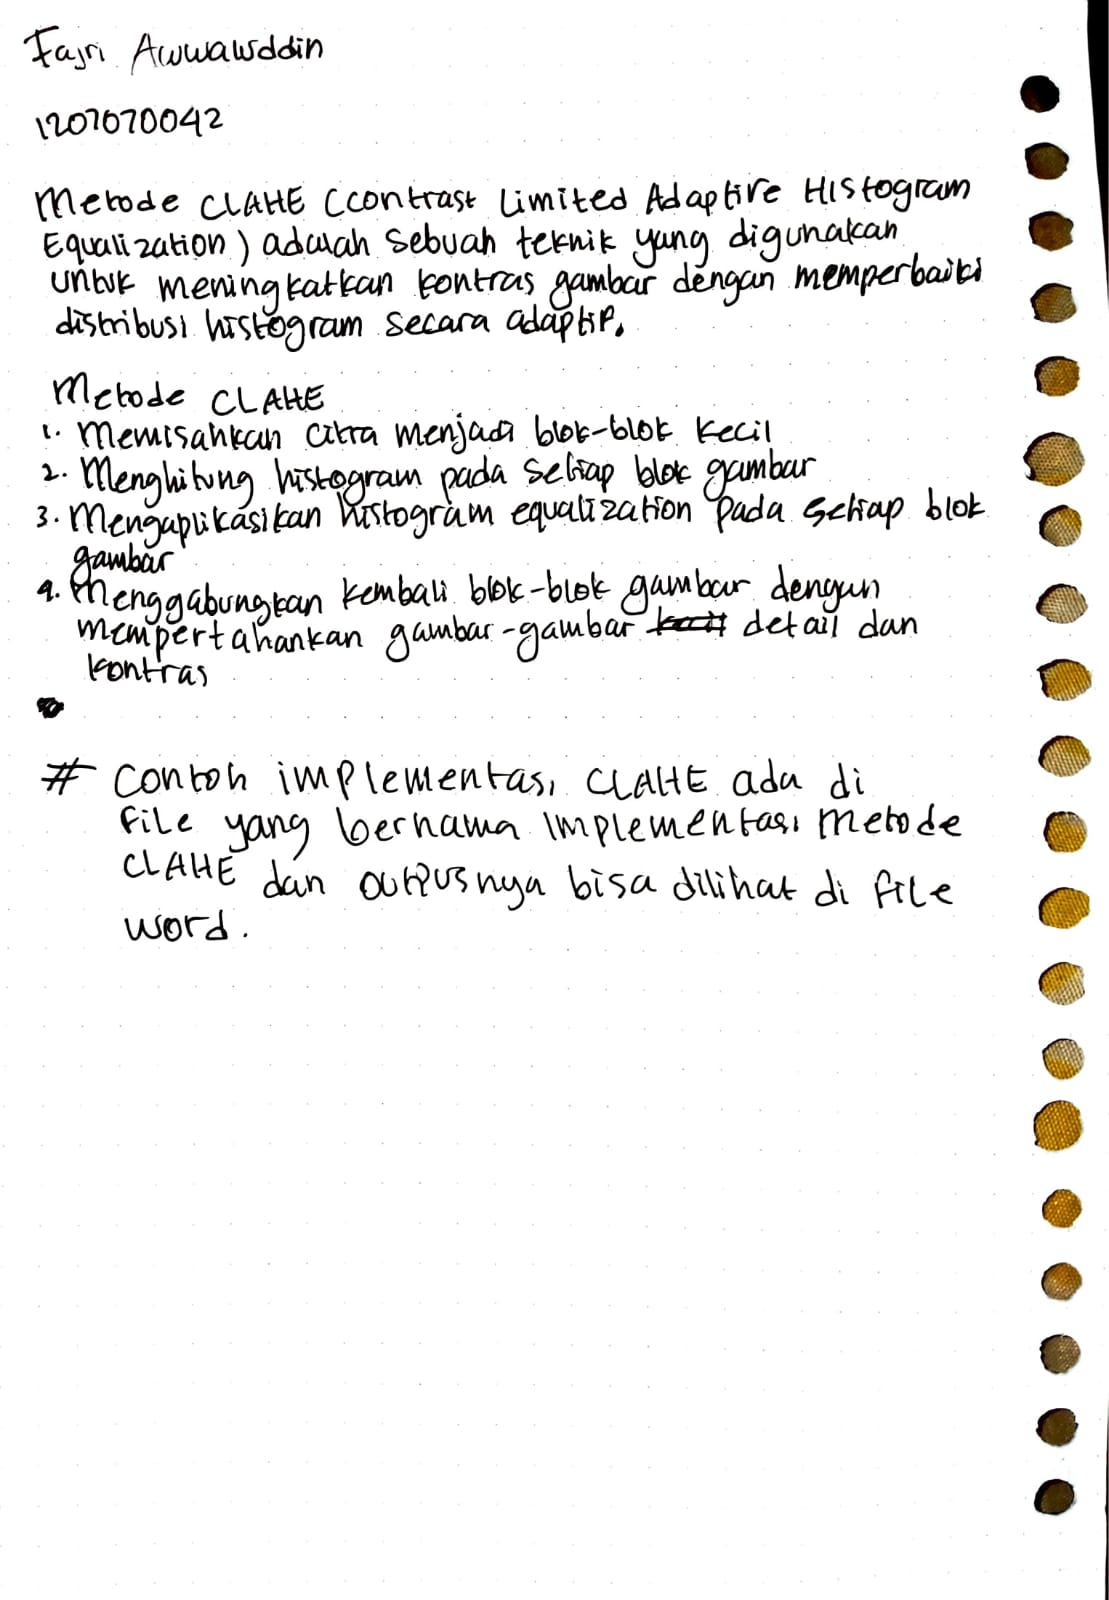 Fajri Awwawddin
1207070042
Metode CLAHE (Contrast Limited Adaptive Histogram
Equalization) adalah sebuah teknik yang digunakan
untuk meningkatkan kontras gambar dengan memperbaiki
distribusi histogram secara adaptif.
Metode CLAHE
1. Memisahkan citra menjadi blok-blok kecil
2. Menghitung histogram pada setiap blok gambar
3. Mengaplikasikan histogram equalization pada setiap blok
gambar
4. Menggabungkan kembali blok-blok gambar dengan
mempertahankan gambar-gambar detail dan
kontras
# Contoh implementasi CLAHE ada di
file yang bernama Implementasi Metode
CLAHE dan outpusnya bisa dilihat di file
word.